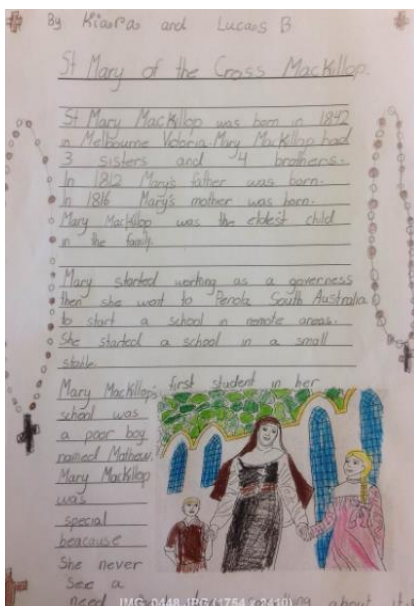 By Kiara and Lucas B
St Mary of the Cross MacKillop.
St Mary MacKillop was born in 1842
in Melbourne Victoria. Mary MacKillop had
3 sisters and 4 brothers.
In 1812 Mary's father was born.
In 1816 Mary's mother was born.
Mary MacKillop was the eldest child
in the family.
Mary started working as a governess
then she went to Penola South Australia
to start a school in remote areas.
She started a school in a small
stable.
Mary MacKillop's first student in her
school was
a poor boy
named Mathew.
Mary MacKillop
was
special
beacause
She never
see a
need
about it
IMG_0448.JPG (1754 x 2410)